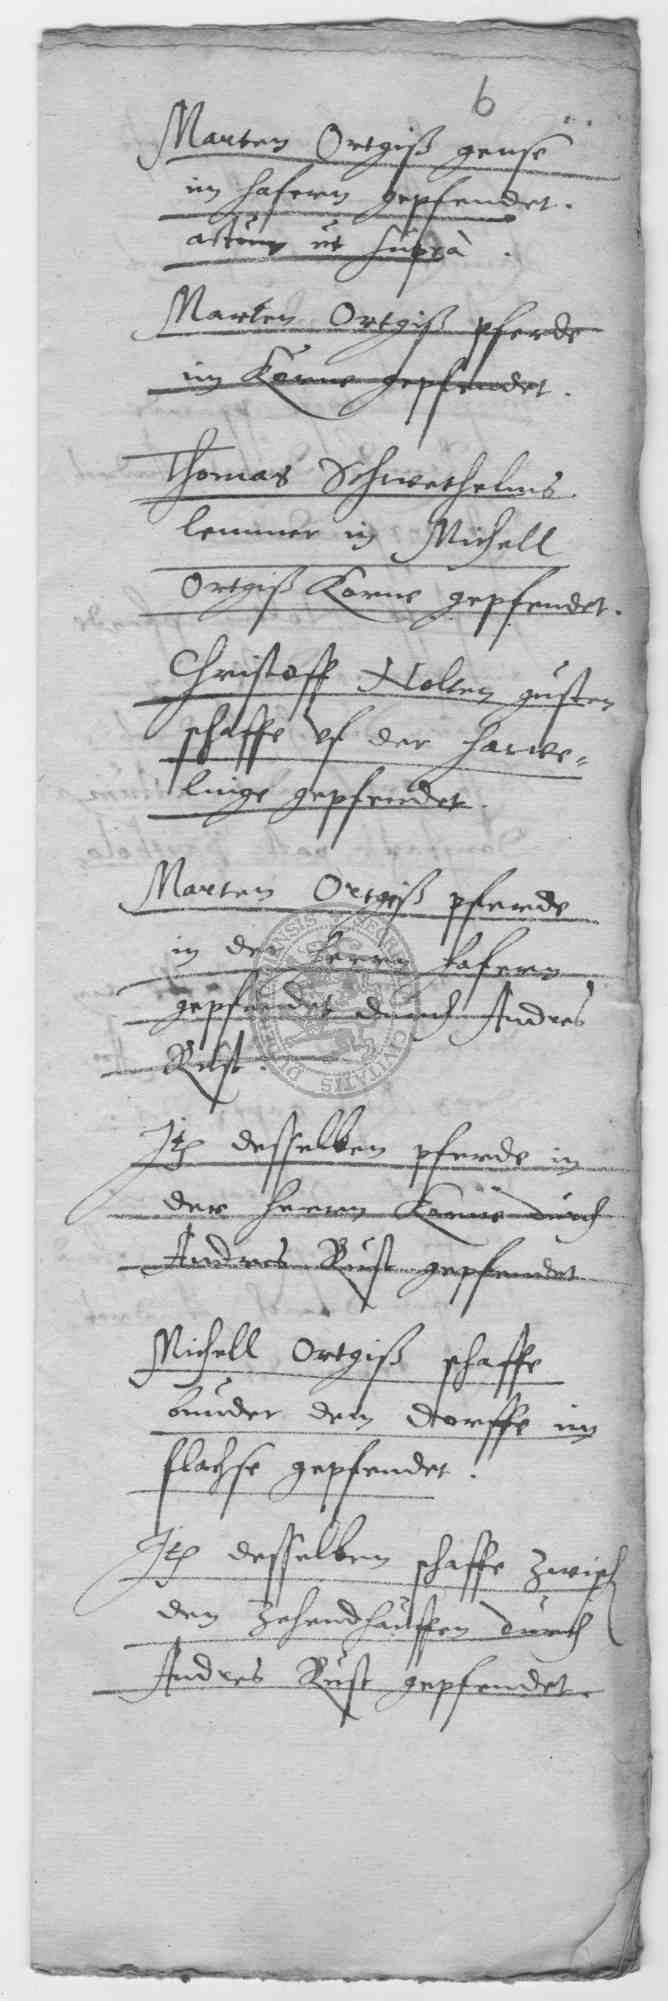 6
Marten Ortgiß gense
im hafern gepfendet.
actum ut supra.
Marten Ortgiß pferde
im Korne gepfendet.
Thomas Schwethelms
lemmer in Michell
Ortgiß Korne gepfendet.
Christoff Nolten gusten
schaffe uf der harwe=
linge gepfendet.
Marten Ortgiß pferde
in der herrn hafern
gepfendet durch Andres
Rust.
Itz desselben pferde in
der herrn Korne durch
Andres Rust gepfendet
Michell Ortgiß schaffe
bunder dem dorffe im
flachse gepfendet.
Itz desselben schaffe zwisch
den zehendhauffen durch
Andres Rust gepfendet.
SECRET CIVITATIS